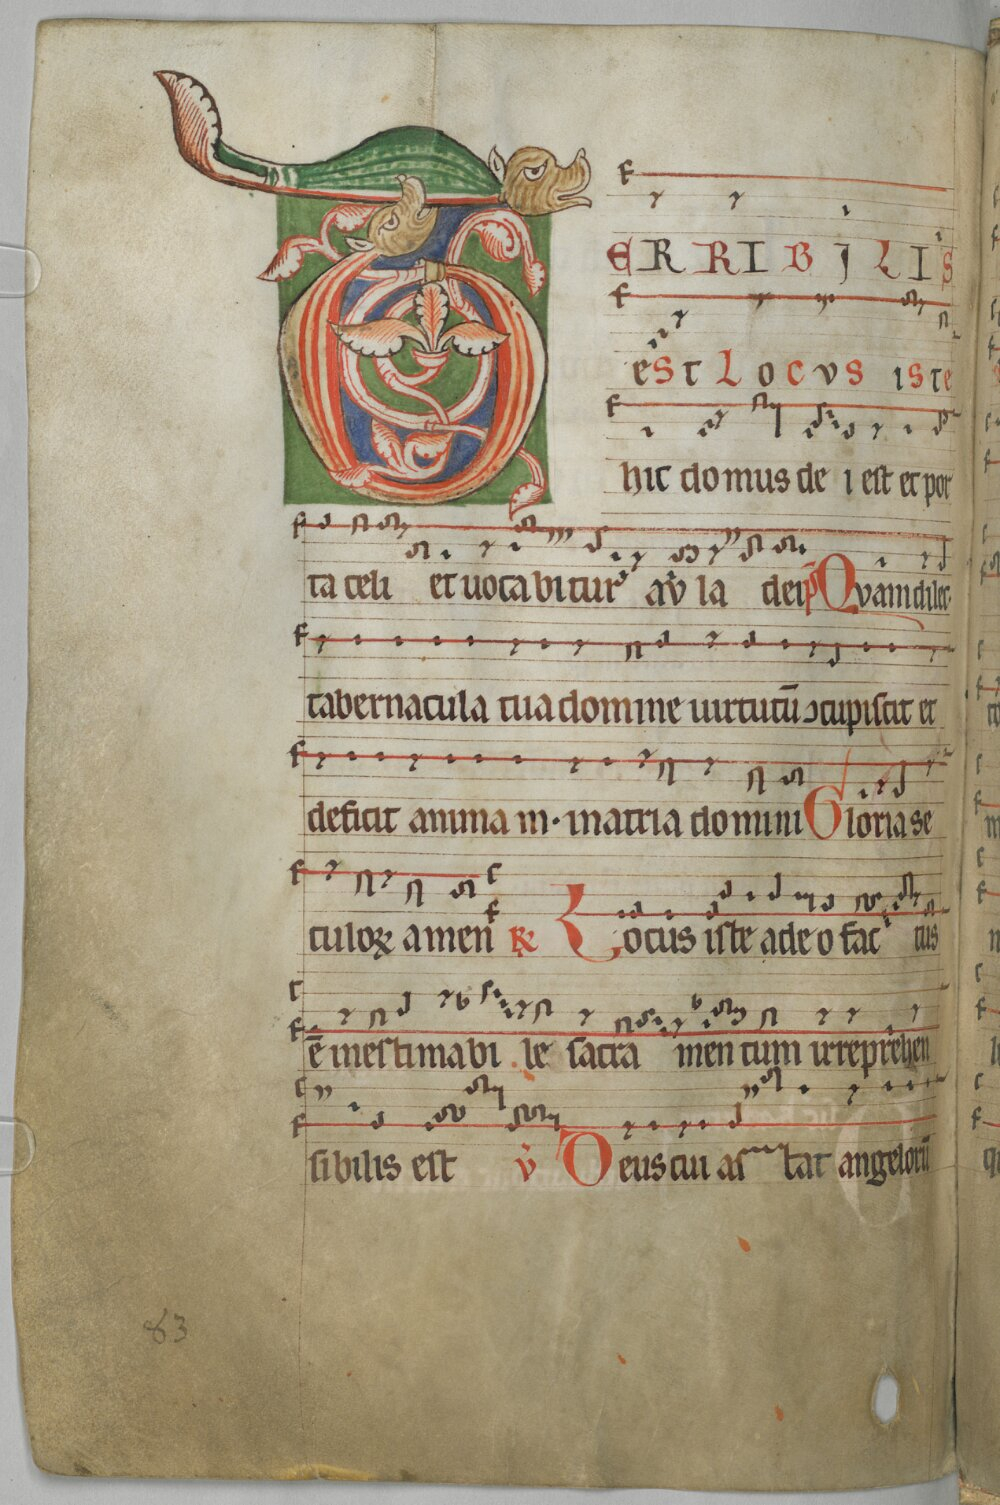 TERRIBILIS
est Locvs iste
hic domus de i est et por
ta celi et uocabitur av la dei p̄ Qvam dilec
tabernacula tua domine uirtutū ↄcupiscit et
deficit anima m· in atria domini Gloria se
culoꝝ amen ℟ Locus iste a deo fac tus
ē inestimabi le sacra men tum irreprehen
sibilis est v̄ Deus cui as tat angelorū
83